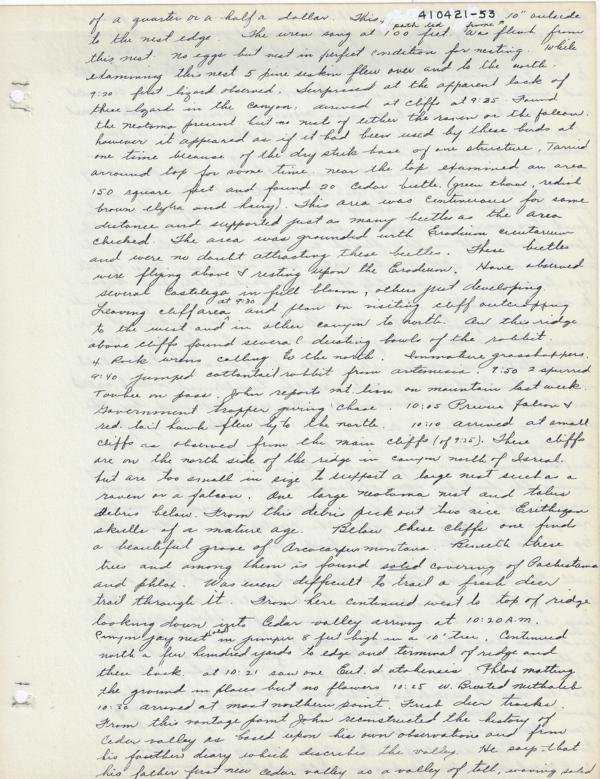 410421-53
of a quarter or a half a dollar. This, path led from 10" outside
to the nest edge. The wren sang at 100 feet was flush from
this nest. No eggs but nest in perfect condition for nesting. While
examining this nest 5 pine siskin flew over and to the north.
9:20 first lizard observed. Surprised at the apparent lack of
these lizard in the canyon. arrived at cliffs at 9:25. Found
the neotoma present but no nest of either the raven or the falcon.
however it appeared as if it had been used by these birds at
one time because of the dry stick base of one structure. Tarried
arround top for some time. near the top examined an area
150 square feet and found 20 cedar beetle. (green thorax, redish
brown elytra and hairy). This area was continuous for some
distance and supported just as many beetles as the area
checked. The area was grounded with Erodium cicutarium
and were no doubt attracting these beetles. These beetles
were flying above & resting upon the Erodium. Have observed
several Castelega in full bloom, others just developing.
Leaving cliff area, at 9:30 and plan on visiting cliff outcropping
to the west and in other canyon to north. On this ridge
above cliffs found several dusting bowls of the rabbit.
4 Rock wrens calling to the north. Immature grasshoppers.
9:40 jumped cottontail rabbit from artemisia. 9:50 2 spurred
Towhee on pass. John reports mt. lion on mountain last week.
Government trapper giving chase. 10:05 Prairie falcon &
red. tail hawk flew by to the north. 10:10 arrived at small
cliffs as observed from the main cliffs (of 9:25). These cliffs
are on the north side of the ridge in canyon north of Isreal.
but are too small in size to support a large nest such as a
raven or a falcon. One large neotoma nest and talus
debris below. From this debris pick out two nice Erethizon
skulls of a mature age. Below these cliffs one find
a beautiful grove of Arcocarpus montana. Beneath these
trees and among them is found solid covering of Pachestama
and phlox. Was even difficult to trail a fresh deer
trail through it. From here continued west to top of ridge
looking down into Cedar valley arriving at 10:20 A.M.
Pinyon jay nest in juniper 8 feet high in a 10' tree. Continued
north a few hundred yards to edge and terminal of ridge and
then back. at 10:21 saw one Eut. d utahensis Phlox matting
the ground in places but no flowers 10:25 W. Breasted Nuthatch
10:30 arrived at most northern point. Fresh deer tracks.
From this vantage point John reconstructed the history of
Cedar valley as based upon his own observations and from
his fathers diary which describes the valley. He says that
his father first new Cedar valley as a valley of tall, waving